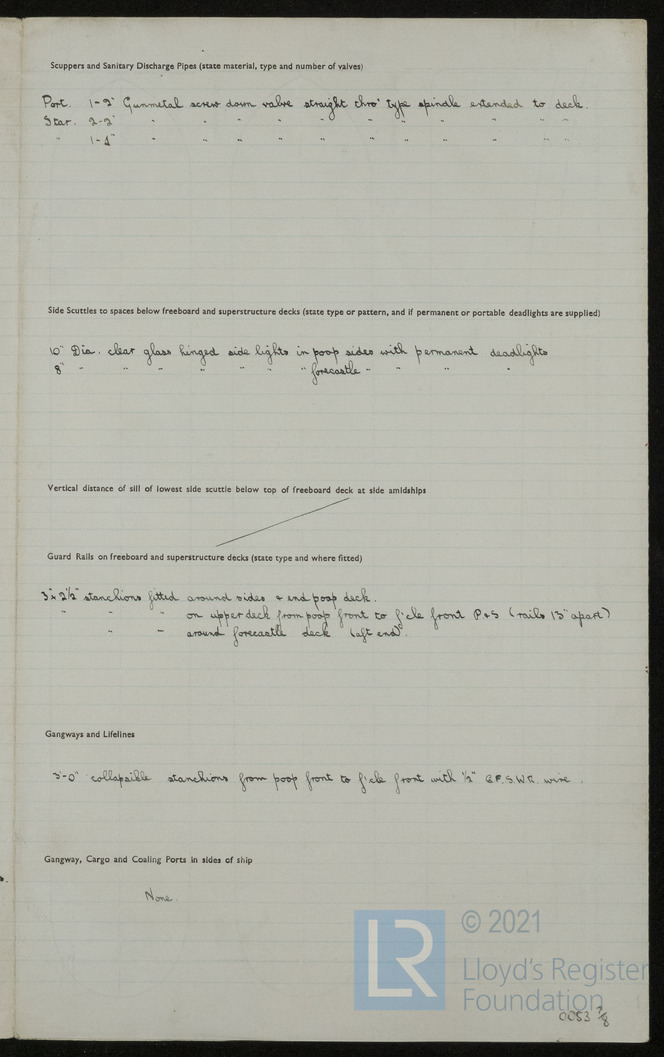 Scuppers and Sanitary Discharge Pipes (state material, type and number of valves)
Port. 1-2" Gunmetal screw down valve straight thro' type spindle extended to deck.
Star. 2-2" " " " " " " " " " " "
" 1-4" " " " " " " " " " " "
Side Scuttles to spaces below freeboard and superstructure decks (state type or pattern, and if permanent or portable deadlights are supplied)
10" Dia. clear glass hinged side lights in poop sides with permanent deadlights
8" " " " " " " " forecastle " " " "
Vertical distance of sill of lowest side scuttle below top of freeboard deck at side amidships
Guard Rails on freeboard and superstructure decks (state type and where fitted)
3' x 2½" stanchions fitted around sides & end poop deck.
" " " on upper deck from poop front to f'cle front P & S (rails 13" apart)
" " around forecastle deck (aft end).
Gangways and Lifelines
3'-0" collapsible stanchions from poop front to f'cle front with ½" S.W.R. wire.
Gangway, Cargo and Coaling Ports in sides of ship
None.
LR
© 2021
Lloyd's Register
Foundation
0053 7/8